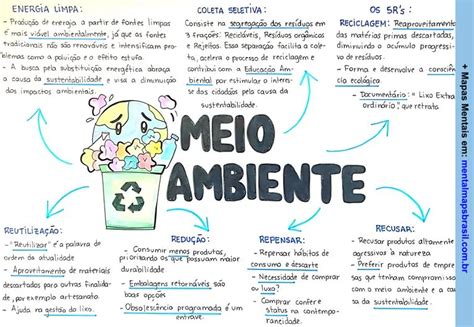 ENERGIA LIMPA:
- Produção de energia a partir de fontes limpas
é mais viável ambientalmente, já que as fontes
tradicionais não são renováveis e intensificam pro-
blemas como a poluição e o efeito estufa.
- A busca pela substituição energética abraça
a causa da sustentabilidade e visa a diminuição
dos impactos ambientais.
COLETA SELETIVA:
Consiste na segregação dos resíduos em
3 frações: Recicláveis, Resíduos orgânicos
e Rejeitos. Essa separação facilita a cole-
ta, acelera o processo de reciclagem e
contribui com a Educação Am-
biental por estimular o interes-
se dos cidadãos pela causa da
sustentabilidade.
OS 5R's:
RECICLAGEM: Reaproveitamento
das matérias primas descartadas,
diminuindo o acúmulo progressi-
vo de resíduos.
- Forma e desenvolve a consciên-
cia ecológica
- Documentário: "Lixo Extra
ordinário", que retrata
MEIO
AMBIENTE
REUTILIZAÇÃO:
- "Reutilizar" é a palavra de
ordem da atualidade
- Aproveitamento de materiais
descartados para outras finalida-
des, por exemplo artesanato.
- Ajuda na gestão do lixo.
REDUÇÃO:
- Consumir menos produtos,
priorizando os que possuam maior
durabilidade
- Embalagens retornáveis são
boas opções
- Obsolescência programada é um
entrave.
REPENSAR:
- Repensar hábitos de
consumo e descarte
- Necessidade de comprar
ou luxo?
- Comprar confere
status na contempo-
raneidade.
RECUSAR:
- Recusar produtos altamente
agressivos à natureza
- Preferir produtos de empre-
sas que tenham compromisso com
o meio ambiente e a causa
da sustentabilidade
+ Mapas Mentais em: mentalmapsbrasil.com.br